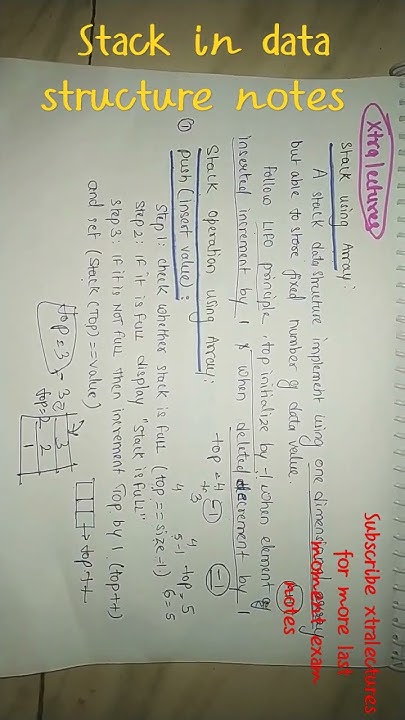 Stack in data
structure notes
Subscribe xtralectures
for more last
moment exam
notes
Xtra lectures
Stack using Array:
A stack data structure implement using one dimensional array
but able to store fixed number of data value.
Follow LIFO principle, top initialize by -1 when element is
inserted increment by 1 & when deleted decrement by 1
Stack operation using Array:
① push(insert value):
Step 1: check whether stack is full (top == size-1)
Step 2: if it is full display "Stack is full"
Step 3: if it is not full then increment Top by 1 (top++)
and set (Stack(Top) == value)
top = 3
top=2
3
2
1
top++
top=5
6=5
5-1
4
-1